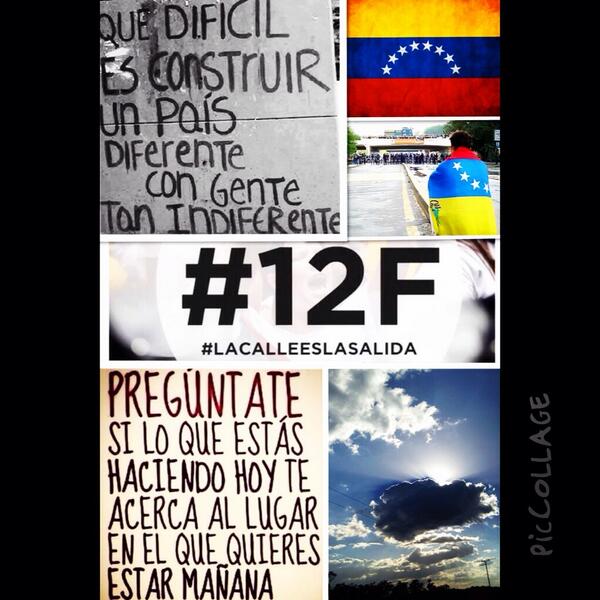 QUE DIFICIL
ES CONSTRUIR
UN PAÍS
DIFERENTE
CON GENTE
TAN INDIFERENTE
#12F
#LACALLEESLASALIDA
PREGÚNTATE
SI LO QUE ESTÁS
HACIENDO HOY TE
ACERCA AL LUGAR
EN EL QUE QUIERES
ESTAR MAÑANA
PicCollage